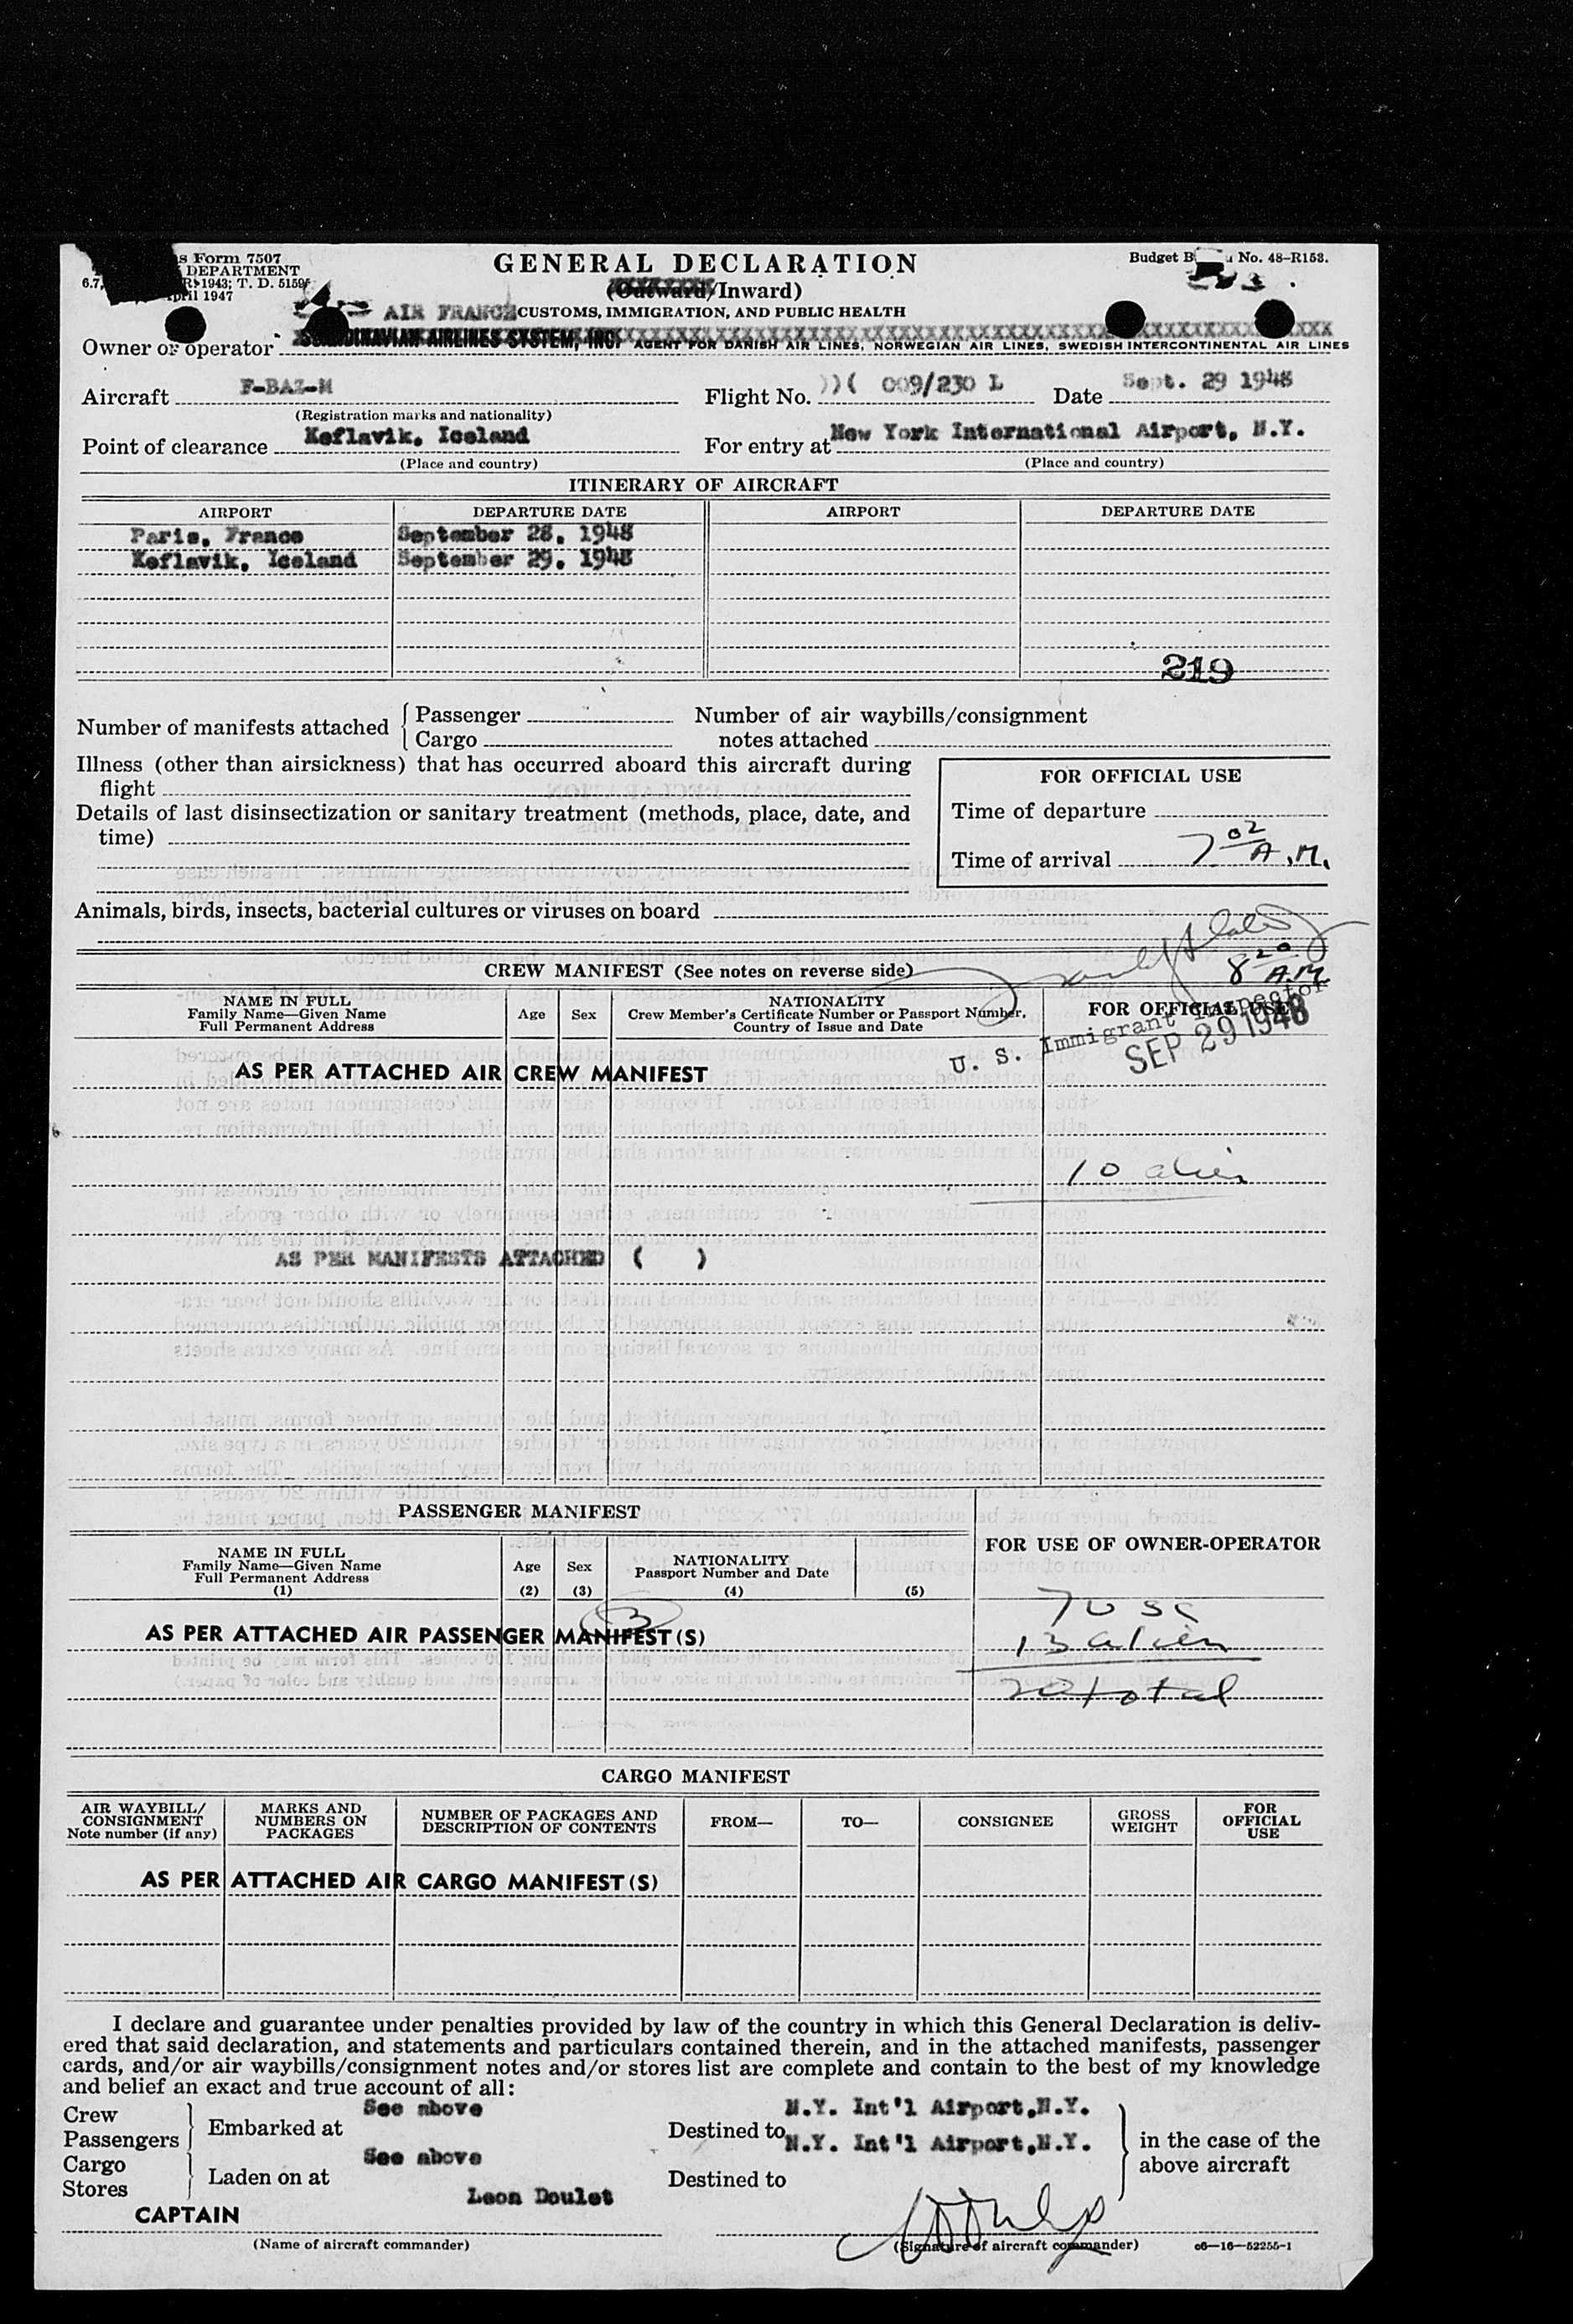 s Form 7507
DEPARTMENT
1943; T. D. 5159
April 1947
GENERAL DECLARATION
(Outward/Inward)
Budget B u No. 48-R153.
AIR FRANCE CUSTOMS, IMMIGRATION, AND PUBLIC HEALTH
Owner or operator SCANDINAVIAN AIRLINES SYSTEM, INC. AGENT FOR DANISH AIR LINES, NORWEGIAN AIR LINES, SWEDISH INTERCONTINENTAL AIR LINES
Aircraft F-BAZ-M Flight No. 009/230 L Date Sept. 29 1948
(Registration marks and nationality)
Point of clearance Keflavik, Iceland For entry at New York International Airport, N.Y.
(Place and country) (Place and country)
ITINERARY OF AIRCRAFT
AIRPORT DEPARTURE DATE AIRPORT DEPARTURE DATE
Paris, France September 28, 1948
Keflavik, Iceland September 29, 1948
219
Number of manifests attached { Passenger
Cargo
Number of air waybills/consignment
notes attached
Illness (other than airsickness) that has occurred aboard this aircraft during
flight
Details of last disinsectization or sanitary treatment (methods, place, date, and
time)
FOR OFFICIAL USE
Time of departure
Time of arrival 7 02 A.M.
Animals, birds, insects, bacterial cultures or viruses on board
8 20 A.M.
CREW MANIFEST (See notes on reverse side)
NAME IN FULL
Family Name—Given Name
Full Permanent Address
Age Sex
NATIONALITY
Crew Member's Certificate Number or Passport Number,
Country of Issue and Date
FOR OFFICIAL USE
U. S. Immigrant Inspector
SEP 29 1948
AS PER ATTACHED AIR CREW MANIFEST
10 alien
AS PER MANIFESTS ATTACHED ( )
PASSENGER MANIFEST
FOR USE OF OWNER-OPERATOR
NAME IN FULL
Family Name—Given Name
Full Permanent Address
(1)
Age
(2)
Sex
(3)
NATIONALITY
Passport Number and Date
(4)
(5)
3
AS PER ATTACHED AIR PASSENGER MANIFEST(S)
7 USC
13 alien
20 total
CARGO MANIFEST
AIR WAYBILL/
CONSIGNMENT
Note number (if any)
MARKS AND
NUMBERS ON
PACKAGES
NUMBER OF PACKAGES AND
DESCRIPTION OF CONTENTS
FROM—
TO—
CONSIGNEE
GROSS
WEIGHT
FOR
OFFICIAL
USE
AS PER ATTACHED AIR CARGO MANIFEST(S)
I declare and guarantee under penalties provided by law of the country in which this General Declaration is deliv-
ered that said declaration, and statements and particulars contained therein, and in the attached manifests, passenger
cards, and/or air waybills/consignment notes and/or stores list are complete and contain to the best of my knowledge
and belief an exact and true account of all:
Crew
Passengers
Cargo
Stores
Embarked at See above
Laden on at See above
Destined to N.Y. Int'l Airport, N.Y.
N.Y. Int'l Airport, N.Y.
Destined to
in the case of the
above aircraft
Leon Doulet
CAPTAIN
(Name of aircraft commander) (Signature of aircraft commander) c6—16—52255-1